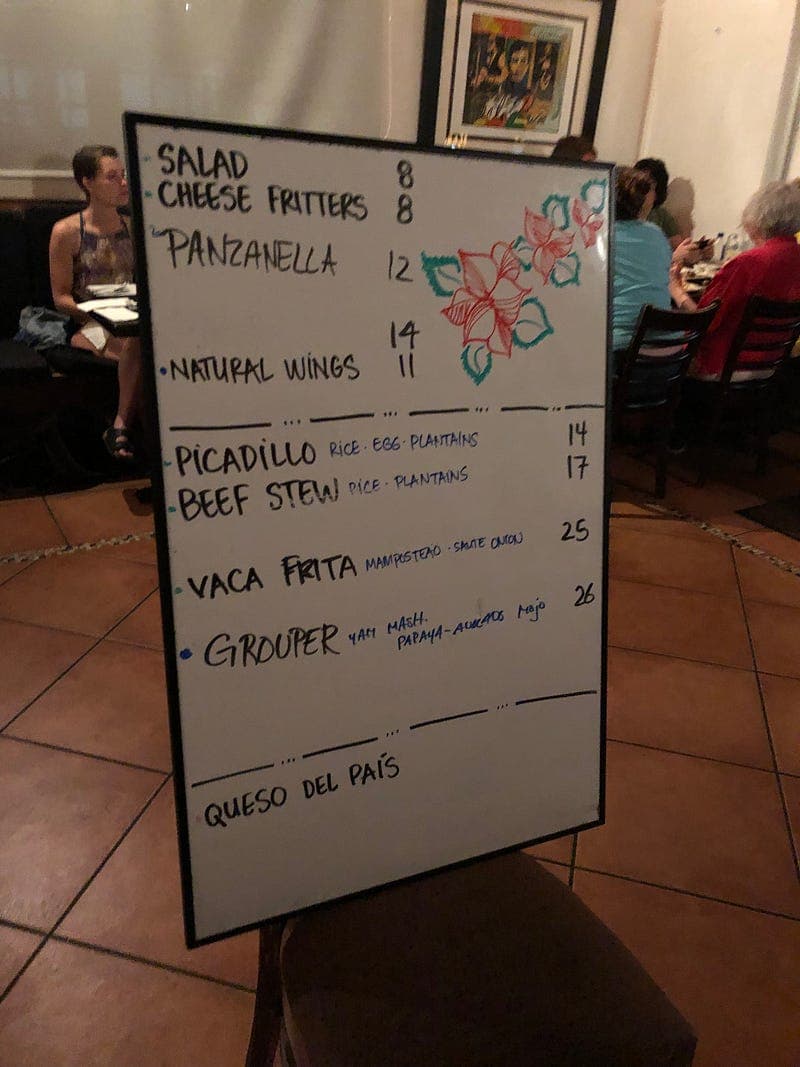 SALAD 8
CHEESE FRITTERS 8
PANZANELLA 12
14
NATURAL WINGS 11
PICADILLO RICE · EGG · PLANTAINS 14
BEEF STEW RICE · PLANTAINS 17
VACA FRITA MAMPOSTEAO · SAUTE ONION 25
GROUPER YAM MASH. 26
PAPAYA - MOJO
QUESO DEL PAÍS